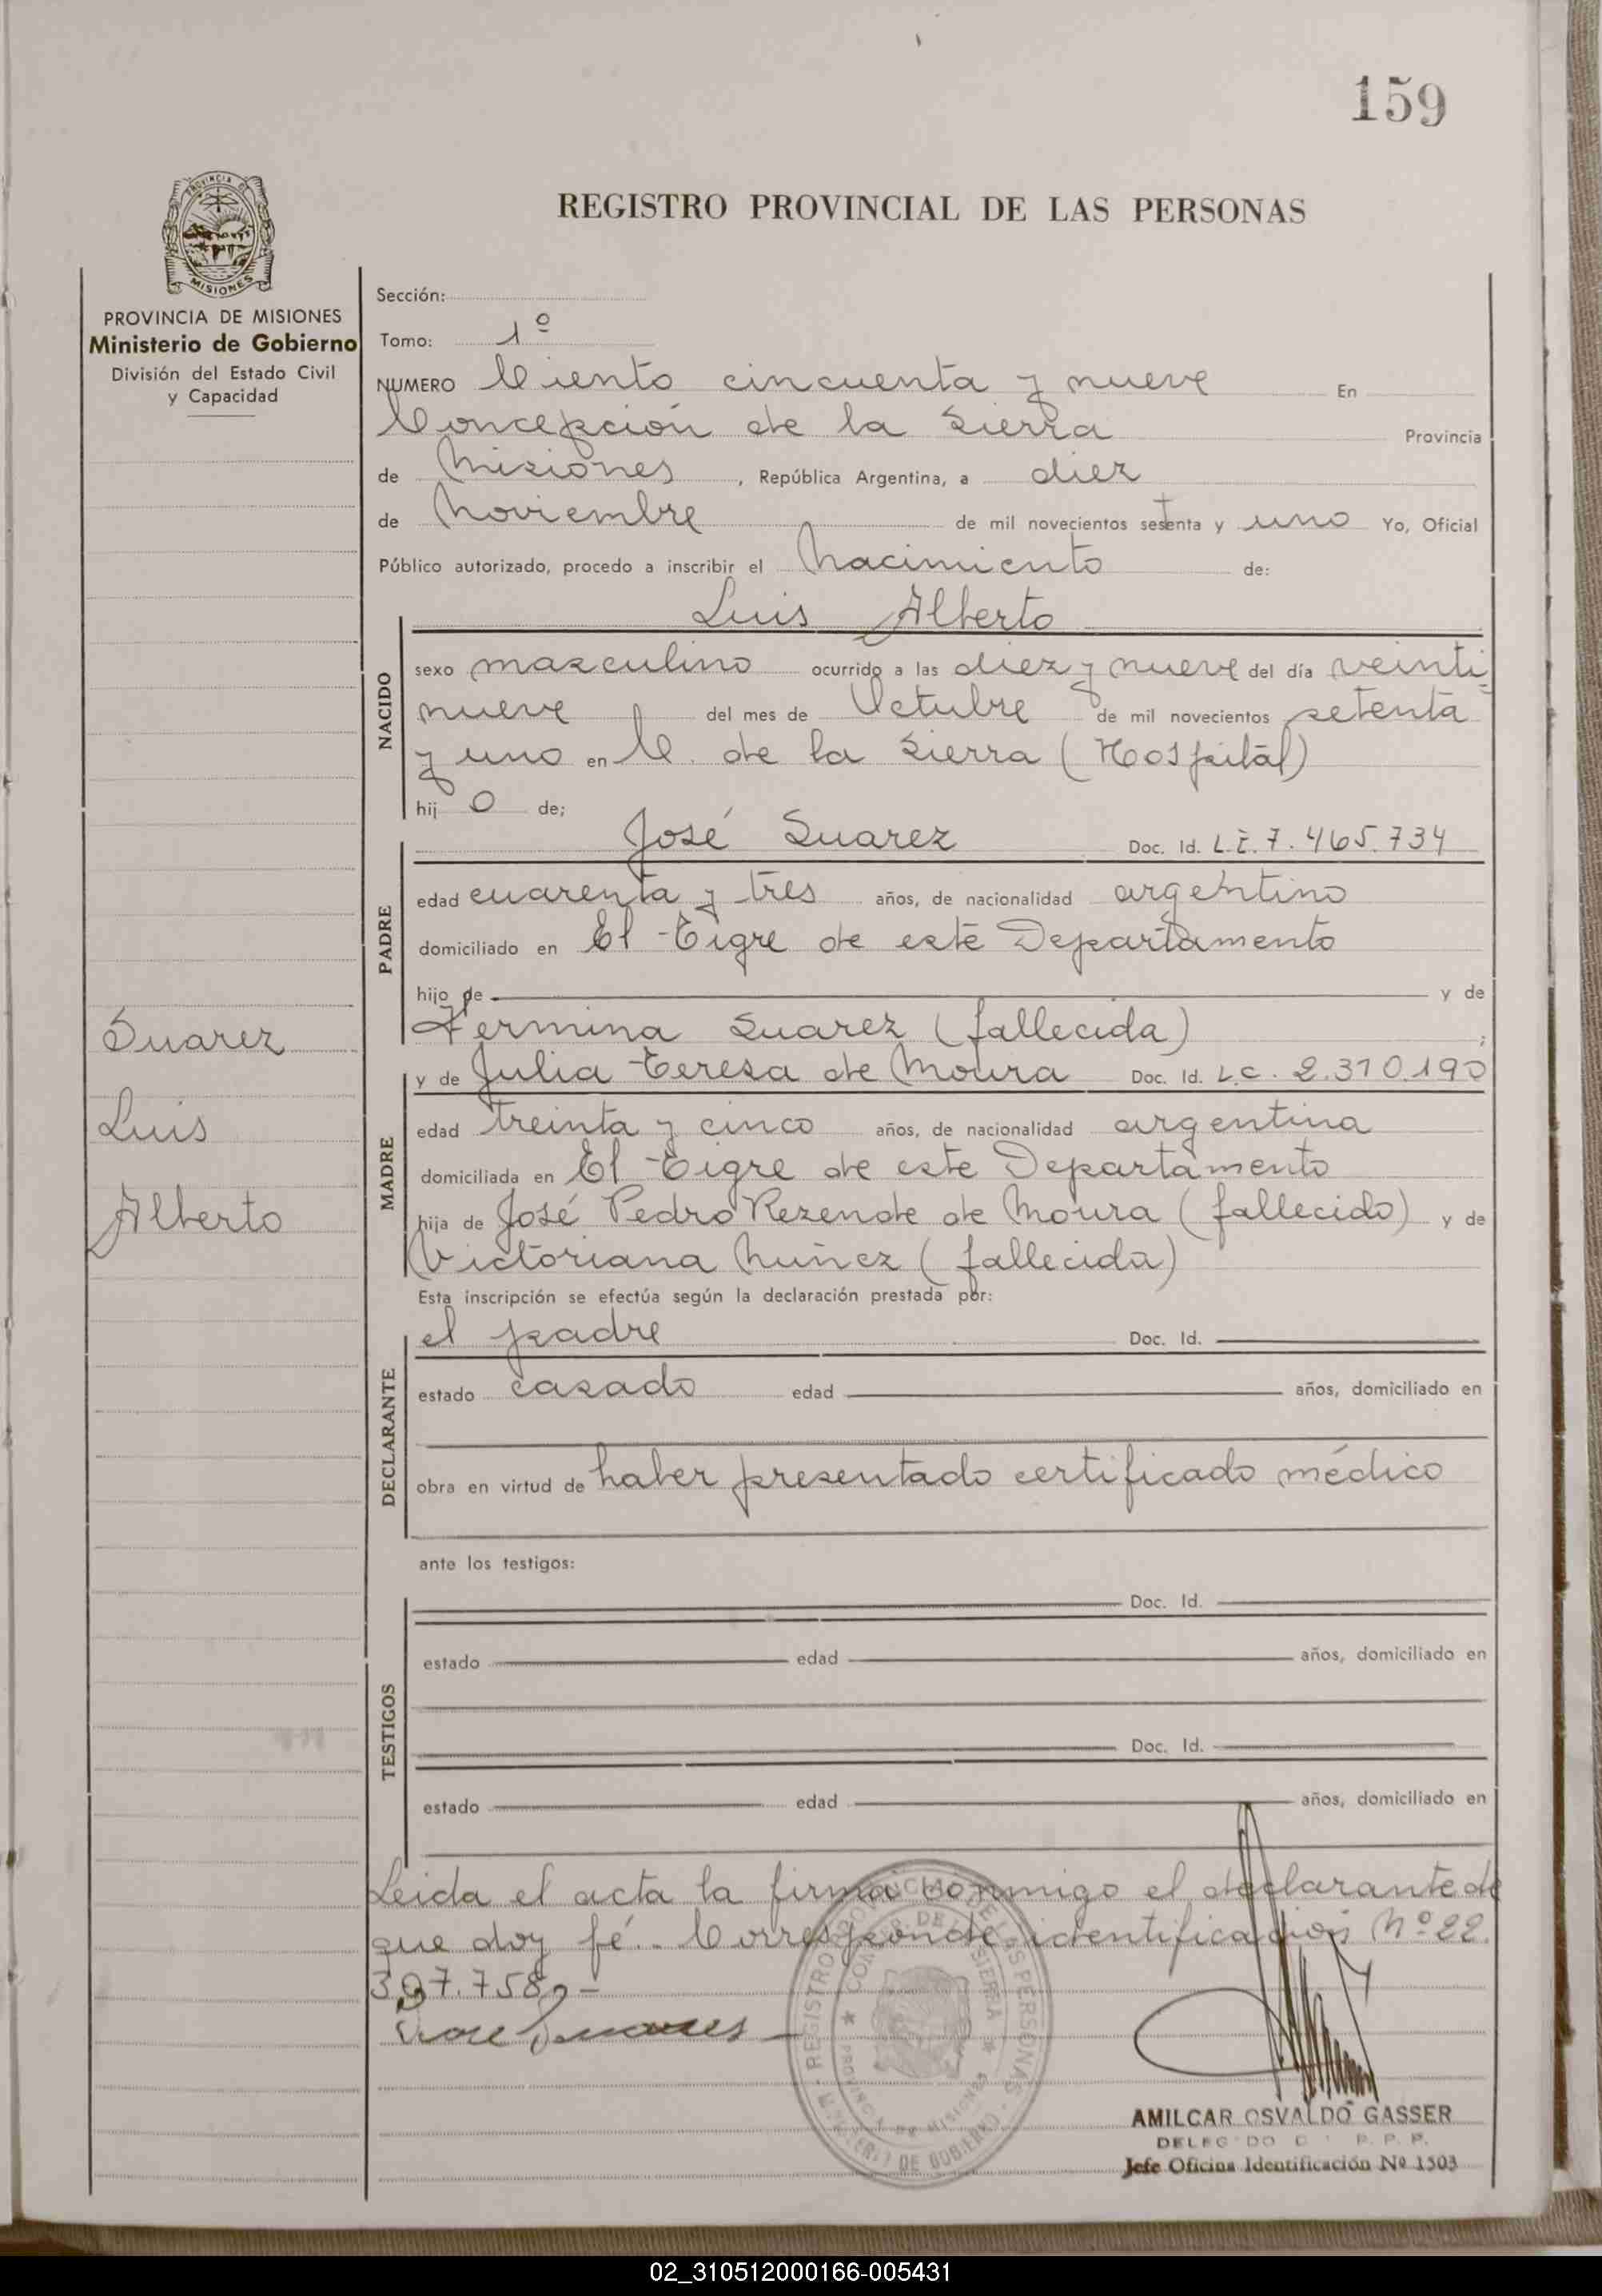 159
REGISTRO PROVINCIAL DE LAS PERSONAS
PROVINCIA DE MISIONES
MISIONES
PROVINCIA DE MISIONES
Ministerio de Gobierno
División del Estado Civil
y Capacidad
Suarez
Luis
Alberto
Sección:
Tomo: 1º
NUMERO Ciento cincuenta y nueve En
Concepción de la Sierra Provincia
de Misiones, República Argentina, a diez
de Noviembre de mil novecientos setenta y uno Yo, Oficial
Público autorizado, procedo a inscribir el Nacimiento de:
Luis Alberto
NACIDO
sexo masculino ocurrido a las diez y nueve del día veinti=
nueve del mes de Octubre de mil novecientos setenta
y uno en C. de la Sierra (Hospital)
hij o de;
José Suarez Doc. Id. L.E. 7.465.734
PADRE
edad cuarenta y tres años, de nacionalidad argentino
domiciliado en El Tigre de este Departamento
hijo de y de
Fermina Suarez (fallecida) ;
y de Julia Teresa de Moura Doc. Id. L.C. 2.310.190
MADRE
edad treinta y cinco años, de nacionalidad argentina
domiciliada en El Tigre de este Departamento
hija de José Pedro Rezende de Moura (fallecido) y de
Victoriana Nuñez (fallecida)
Esta inscripción se efectúa según la declaración prestada por:
el padre Doc. Id.
DECLARANTE
estado casado edad años, domiciliado en
obra en virtud de haber presentado certificado médico
ante los testigos:
Doc. Id.
TESTIGOS
estado edad años, domiciliado en
Doc. Id.
estado edad años, domiciliado en
Leida el acta la firma conmigo el declarante de
que doy fé.. Corresponde identificación Nº 22.
307.758.-
Jose Suares
REGISTRO PROVINCIAL DE LAS PERSONAS
DE LA SIERRA
PROVINCIA DE MISIONES
DE GOBIERNO
AMILCAR OSVALDO GASSER
Jefe Oficina Identificación Nº 1503
02_310512000166-005431